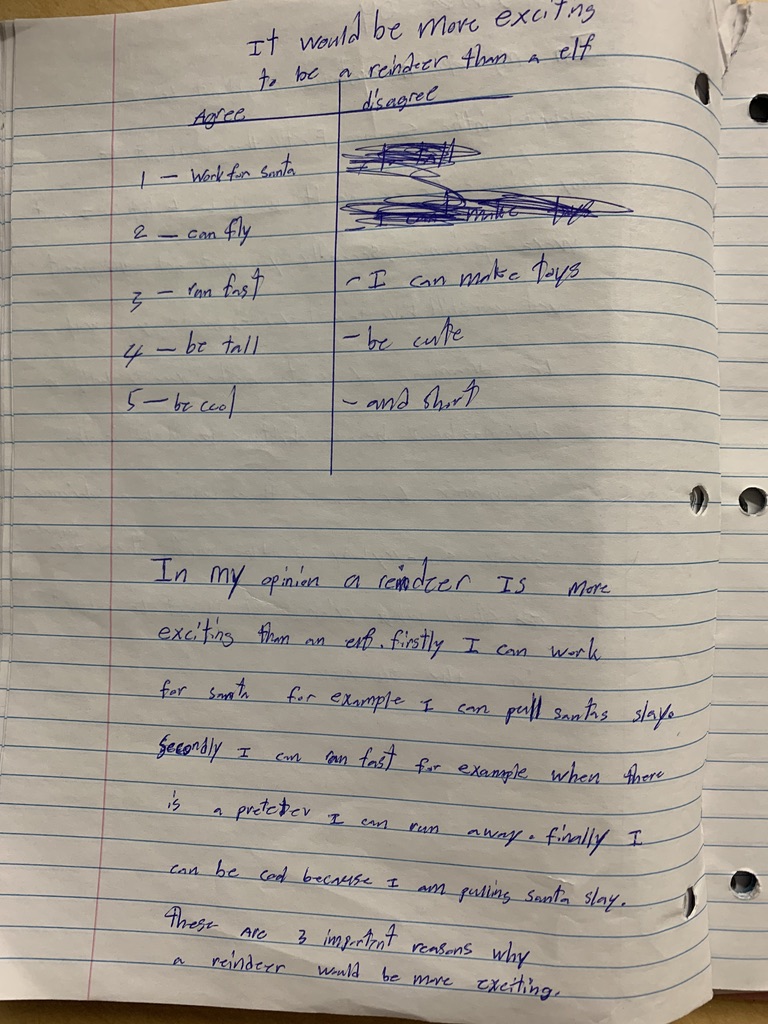 It would be more exciting
to be a reindeer than a elf
Agree disagree
1 - Work for santa
2 - can fly
3 - run fast - I can make toys
4 - be tall - be cute
5 - be cool - and short
In my opinion a reindeer Is more
exciting than an elf. firstly I can work
for santa for example I can pull santas slay.
Secondly I can run fast for example when there
is a preteter I can run away. finally I
can be cool because I am pulling santa slay.
These are 3 important reasons why
a reindeer would be more exciting.